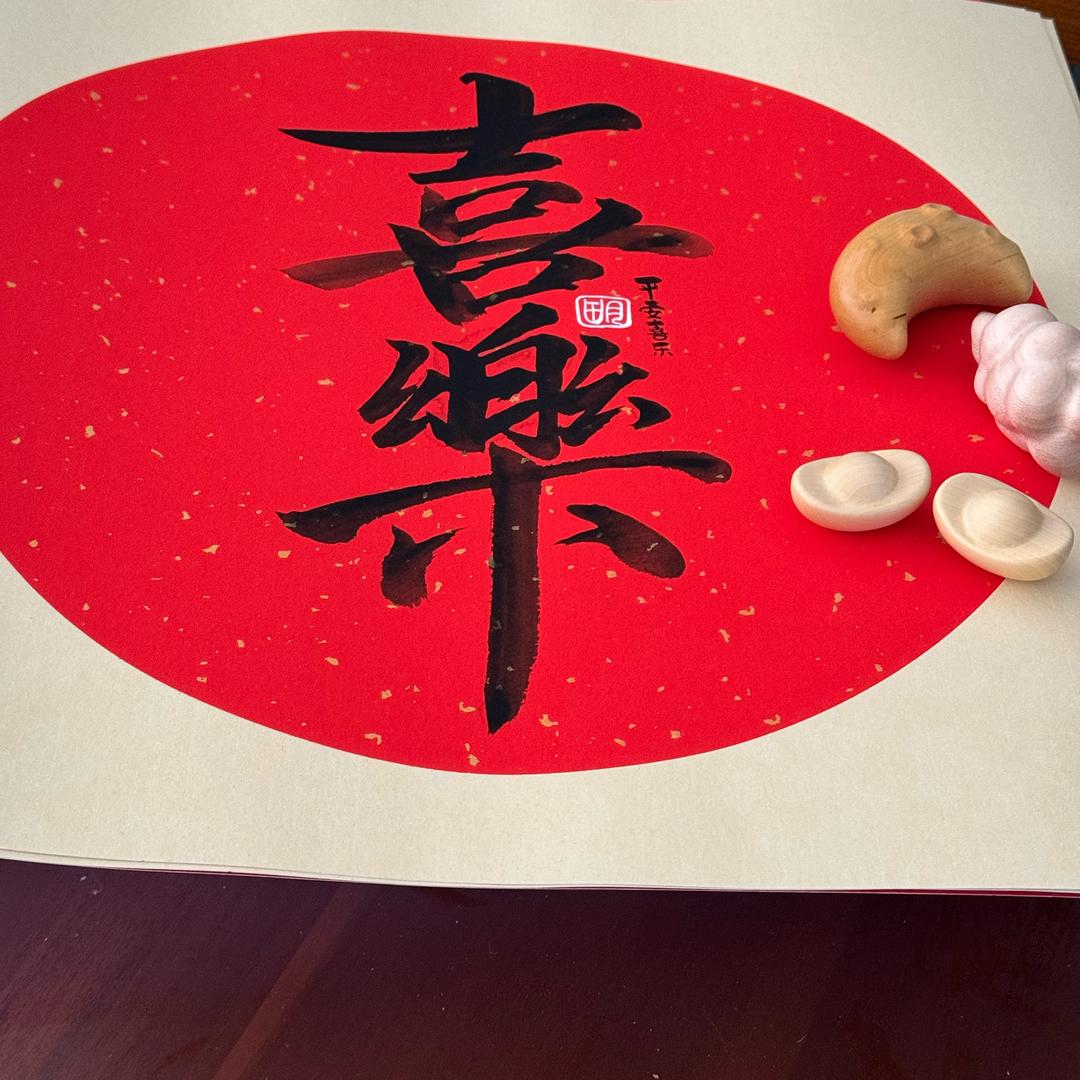 喜
樂
平安喜乐